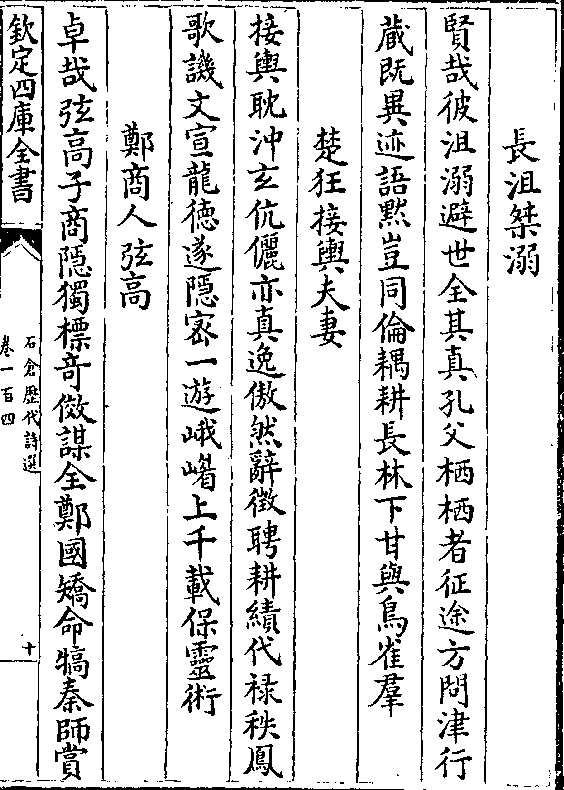 長沮桀溺
賢哉彼沮溺避世全其真孔父栖栖者征途方問津行
蔵既異迹語黙豈同倫耦耕長林下甘與鳥雀羣
楚狂接輿夫妻
接輿耽沖玄伉儷亦真逸傲然辭徴聘耕績代禄秩鳳
歌譏文宣龍徳遂隠宻一遊峨嵋上千載保靈術
鄭商人弦高
卓哉弦高子商隠獨標奇儌謀全鄭國矯命犒秦師賞
欽定四庫全書
石倉歴代詩選
卷一百四
十